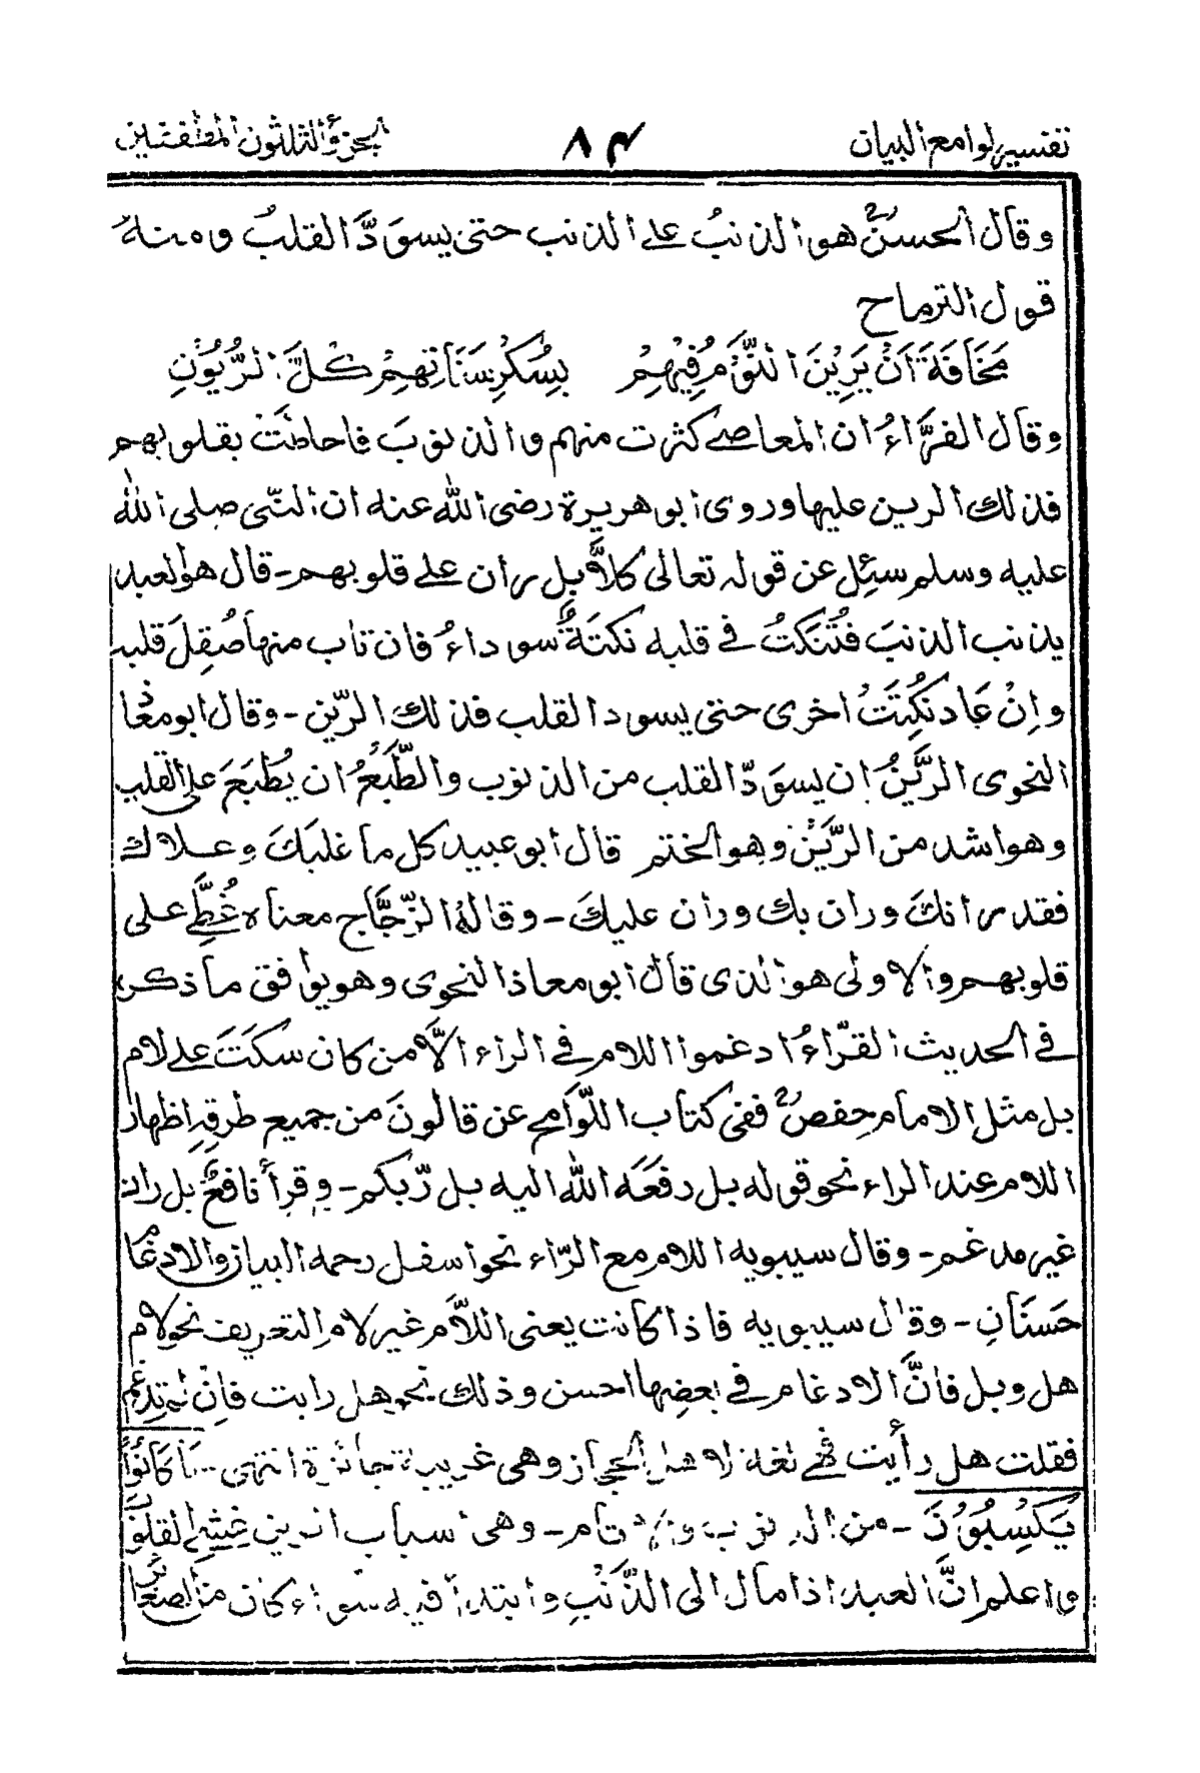 تفسير لوامع البيان ٨٣ الجزؤ الثلثون المطففين
وقال الحسنؒ هو الذنبُ على الذنب حتى يسودَّ القلبُ ومنه
قول الترماح
مَخَافَةَ اَنْ يَرِيْنَ النَّوْمُ فِيْهِمْ بِسُكْرِ سَنَاتِهِمْ كُلَّ الرُّيُوْنِ
وقال الفرَّاءُ ان المعاصى كثرت منهم والذنوبَ فاحاطتْ بقلوبهم
فذلك الرين عليها وروى ابو هريرة رضى الله عنه ان النبى صلى الله
عليه وسلم سئِل عن قوله تعالى كلاَّ بل ران على قلوبهم - قال هو العبد
يذنب الذنبَ فتُنكَتُ فى قلبه نكتةٌ سوداءُ فان تاب منها صُقِلَ قلبه
واِنْ عَاد نُكِتَتُ اخرى حتى يسود القلب فذلك الرّين - وقال ابو معاذ
النحوى الرَّيْنُ ان يسوَدّ القلب من الذنوب والطَّبْعُ ان يُطْبَعَ على القلب
وهو اشد من الرَّيْنِ وهو الختم قال ابو عبيد كل ما غلبَكَ وعلاك
فقد رانكَ وران بك وران عليكَ - وقالهُ الزّجَّاج معناه غُطِّىَ على
قلوبهم والاولى هو الذى قال ابو معاذ النحوى وهو يوافق ما ذكر
فى الحديث القرّاءُ ادغموا اللام فى الراء الاَّ من كان سكتَ على لام
بل مثل الامام حفصؒ ففى كتاب اللّوامح عن قالونَ من جميع طرقِهِ اظهار
اللام عند الراء نحو قوله بل رفعَه الله اليه بل رّبكم - وقرأ نافعٌ بل ران
غير مدغم - وقال سيبويه اللام مع الرّاء نحو اسفل رحمه البيان والادغام
حَسَنَانِ - وقال سيبويه فاذا كانت يعنى اللاَّم غير لام التعريف نحو لام
هل وبل فانَّ الادغام فى بعضِها احسن وذلك نحو هل رايت فاِنْ لم تدغم
فقلت هل رأيت فهى لغة لاهل الحجاز وهى غريبة جائزة انتهى - مَا كَانُوْا
يَكْسِبُوْنَ - من الذنوب والاثام - وهى اسباب الرين
واعلم انَّ العبد اذا مال الى الذَّنْبِ وابتدأ فيه سواء كان من الصغائر